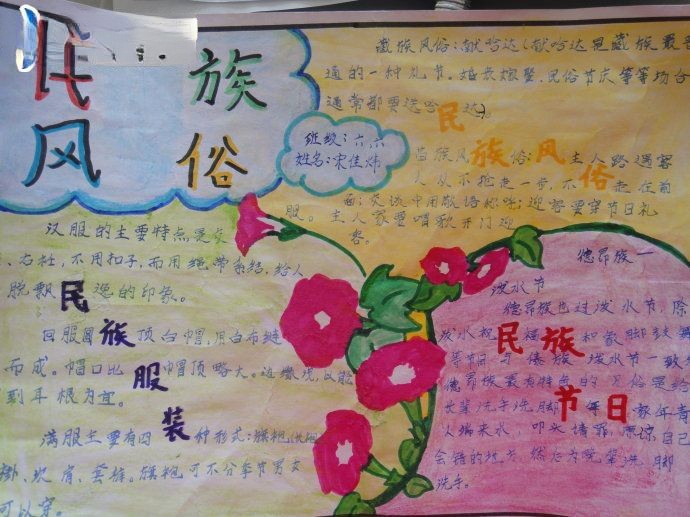 民族
风俗
班级：六、六
姓名：宋佳炜
藏族风俗：献哈达(献哈达是藏族最
通的一种礼节。婚丧嫁娶、民俗节庆等等场合
通常都要送哈达)。
民族风俗
苗族风俗：主人路遇客
人从不抢走一步，不走在前
面；交谈中用敬语称呼；迎客要穿节日礼
服。主人家要唱歌开门迎
客。
汉服的主要特点是交
、右衽，不用扣子，而用绳带系结，给人
脱飘逸的印象。
民族服装
回服 顶白帽，用白布缝
而成。帽口比帽顶略大。
到耳根为宜。
满服主要有四种形式：旗袍、
褂、坎肩、套裤。旗袍可不分季节男女
可以穿。
德昂族一
泼水节
德昂族也过泼水节，除
泼水 和
等节目与傣族泼水节一致
德昂族最有特色的习俗是给
长辈洗手洗脚。 年青
人端来水，叩头请罪，原谅自己
会错的地方，然后为晚辈洗脚
洗手。
民族节日